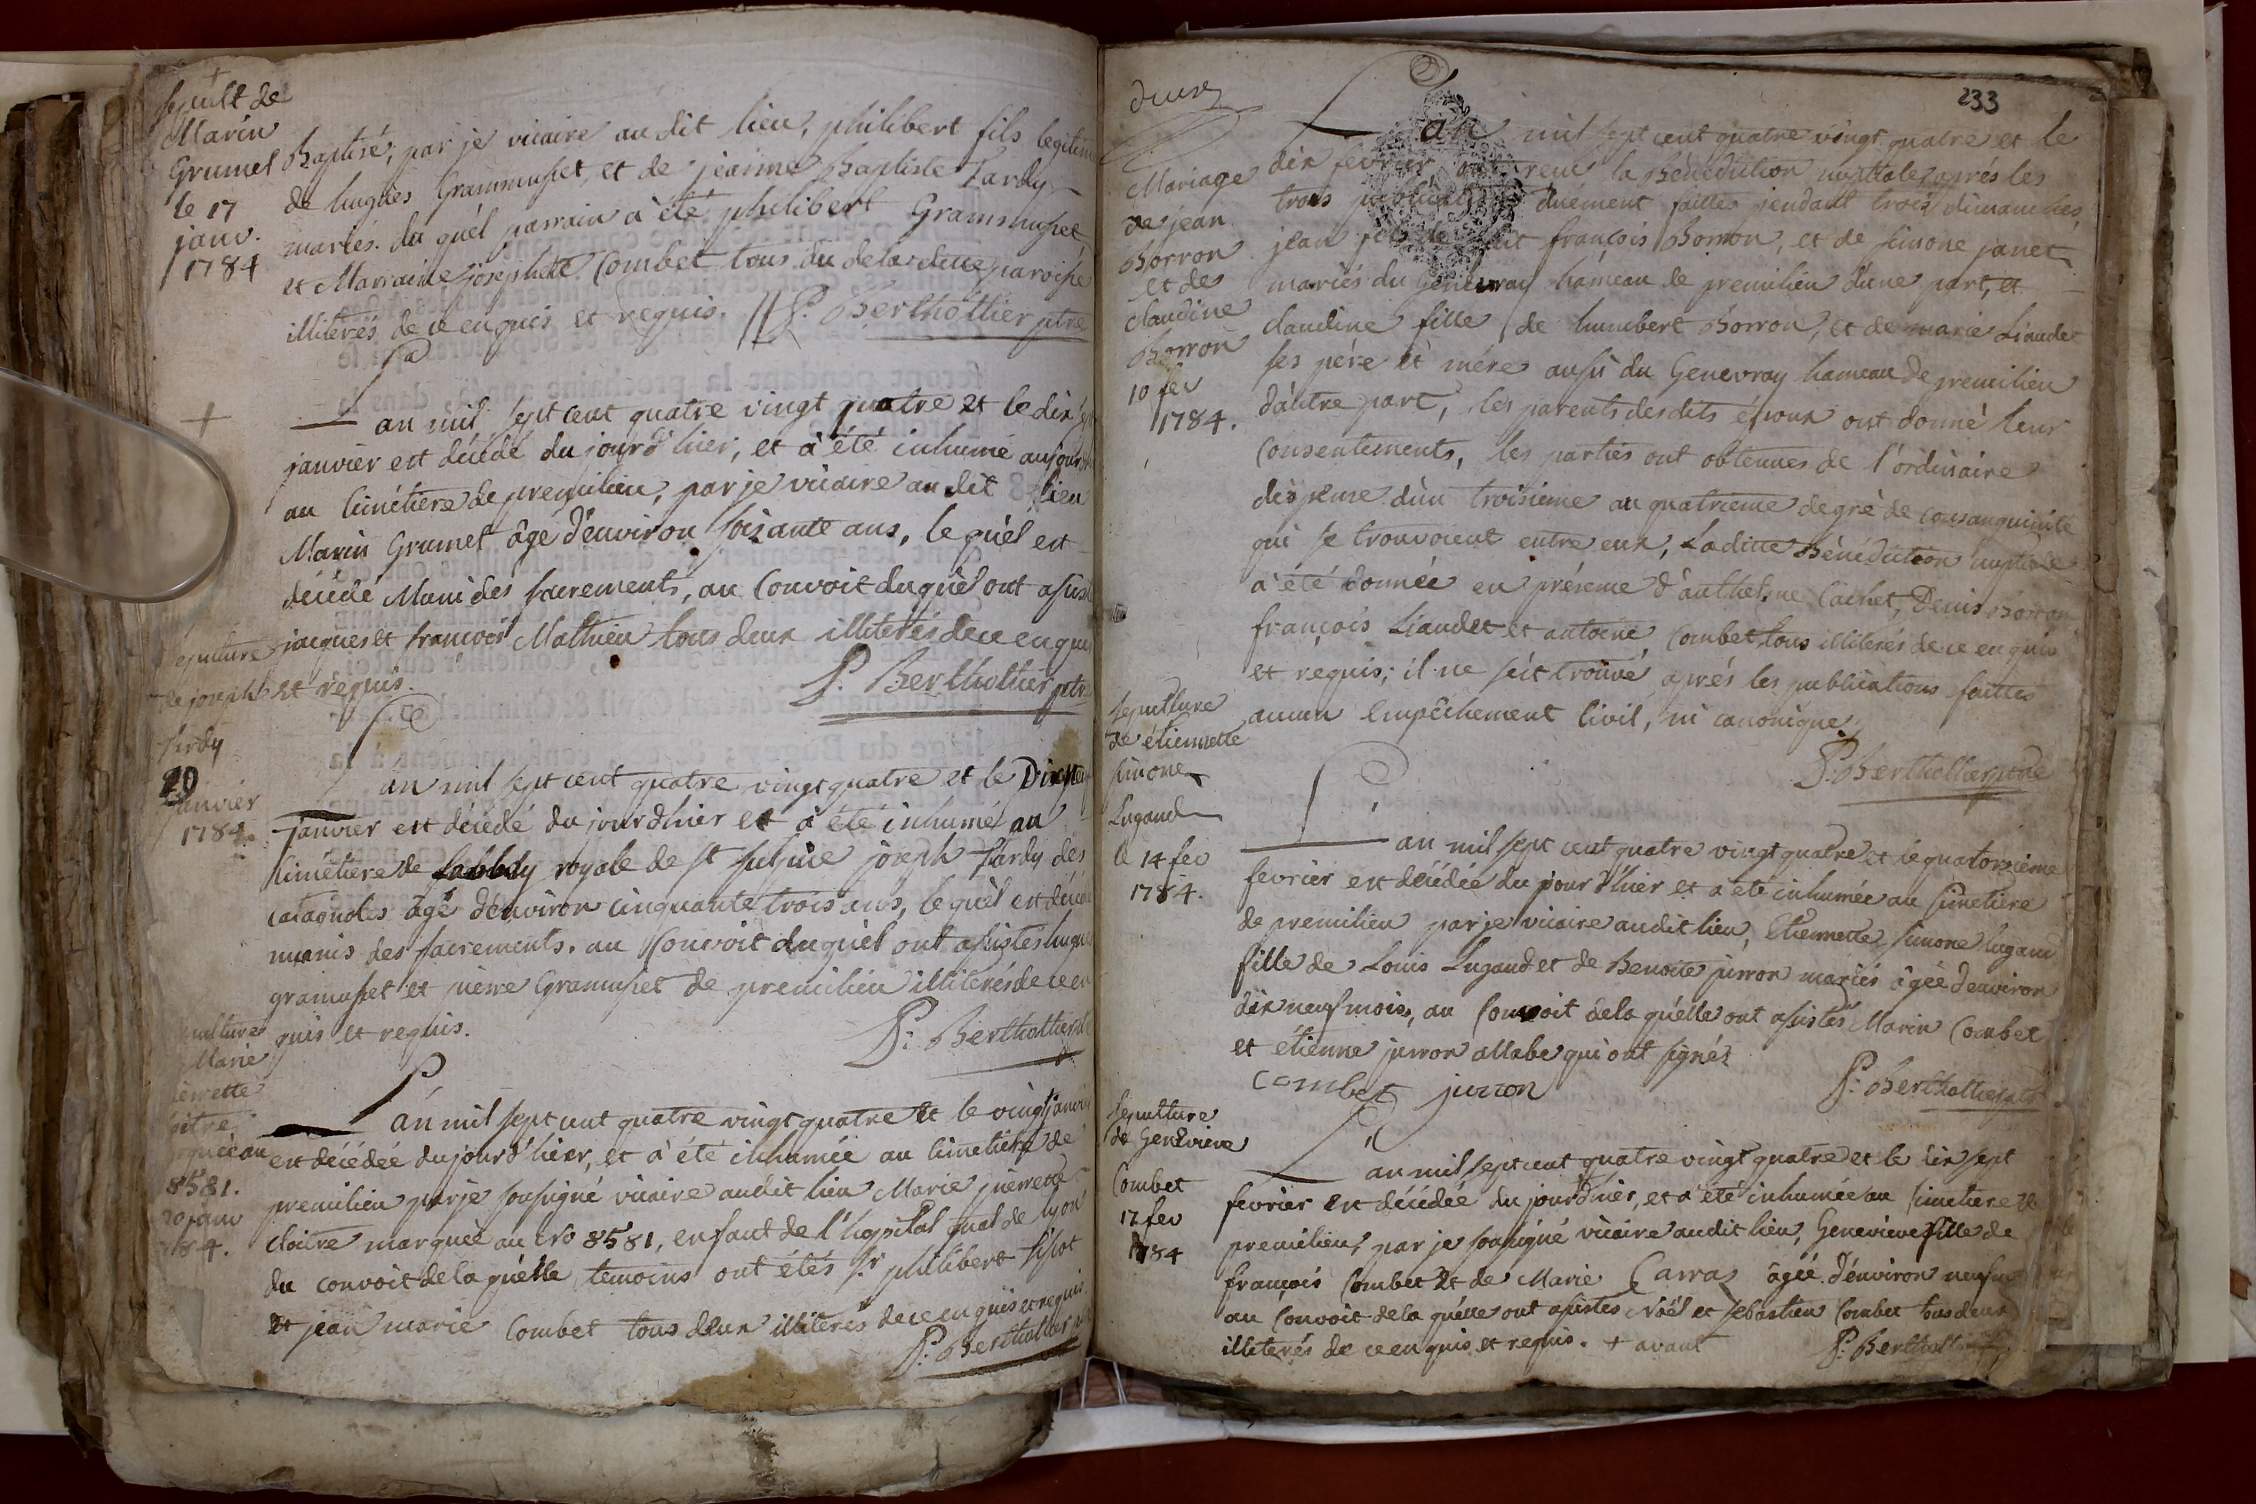 sepult de
Marin
Grumet
le 17
janv.
1784
Baptisé, par je vicaire au dit lieu, philibert fils legitime
de hugues Grammusset, et de jeanne Baptiste Tardy
mariés. du quel parrain à été philibert Grammusset
et Marraine josephete Combet tous du de la ditte paroisse
illiterés de ce enquis et requis. P. Berthollier ptre
L'an mil sept cent quatre vingt quatre et le dix sept
janvier est décédé du jourd'hier, et à été inhumé aujourd
au cimétiere de premilieu, par je vicaire au dit lieu
Marin Grumet âge d'environ soixante ans, le quel est
décédé Muni des sacrements, au Convoit du quel ont assisté
jacques et francois Mathieu tous deux illiterés de ce enquis
et requis.
P. Berthollier ptre
sepulture
de joseph
tardy
20
janvier
1784.
L'an mil sept cent quatre vingt quatre et le Dix sept
janvier est décédé du jourdhier et à été inhumé au
cimétiere de royale de st sulpice joseph tardy des
catagnoles âgé d'environ cinquante trois ans, le quel est décédé
munis des sacrements. au Convoit du quel ont assistés hugues
gramusset et pierre Gramusset de premilieu illiterés de ce en
quis et requis.
P. Berthollier
sepulture
Marie
pierrette
cloitre
marquée au
8581.
20 janv
1784.
L'an mil sept cent quatre vingt quatre et le vingt janvier
est décédée du jourd'hier, et à été inhumée au cimetiere de
premilieu par je soussigné vicaire audit lieu Marie pierrette
cloitre marquée au No 8581, enfant de l'hopital gnal de lyon
du convoit de la quelle temoins ont étés sr philibert
et jean marie Combet tous deux illiterés de ce enquis et requis
P. Berthollier
233
Mariage
de jean
Borron
et de
claudine
Borron
10 fev
1784.
L'an mil sept cent quatre vingt quatre et le
dix fevrier ont receu la Bénédiction nuptiale aprés les
trois publications duement faittes pendant trois dimanches,
jean fils de françois Borron, et de simone janet
mariés du Genevray hameau de premilieu d'une part, et
claudine fille de humbert Borron, et de marie Liaudet
ses pére et mére aussi du Genevray hameau de premilieu
d'autre part, les parents desdits époux ont donné leur
Consentements, les parties ont obtenues de l'ordinaire
dispense d'un troisieme au quatrieme degré de consanguinité
qui se trouvoient entre eux, Laditte Bénédiction nuptiale
a été donnée en présence d'anthelme Cachet, Denis Borron
françois Liaudet et antoine Combet tous illiterés de ce enquis
et requis; il ne s'eit trouvé aprés les publications faittes
aucun Empêchement Civil, ni canonique.
P. Berthollier ptre
sepulture
de étiennette
simone
Lugand
le 14 fev
1784.
L'an mil sept cent quatre vingt quatre et le quatorzieme
fevrier est décédée du jourd'hier et a été inhumée au cimetiere
de premilieu par je vicaire audit lieu, Etiennette simone lugand
fille de Louis Lugand et de Benoite jurron mariés âgée d'environ
dix neuf mois, au Convoit de la quelle ont assistés Marin Combet
et étienne jurron allabe qui ont signés
Combet jurron
P. Berthollier ptre
sepulture
de Genevieve
Combet
17 fev
1784
L'an mil sept cent quatre vingt quatre et le dix sept
fevrier est décédée du jourdhier, et a été inhumée au cimetiere de
premilieu, par je soussigné vicaire audit lieu, Genevieve fille de
françois Combet et de Marie Garraz âgée d'environ neuf
au Convoit de la quelle ont assistés Noël et sebastien Combet tous deux
illiterés de ce enquis et requis. + avant
P. Berthollier